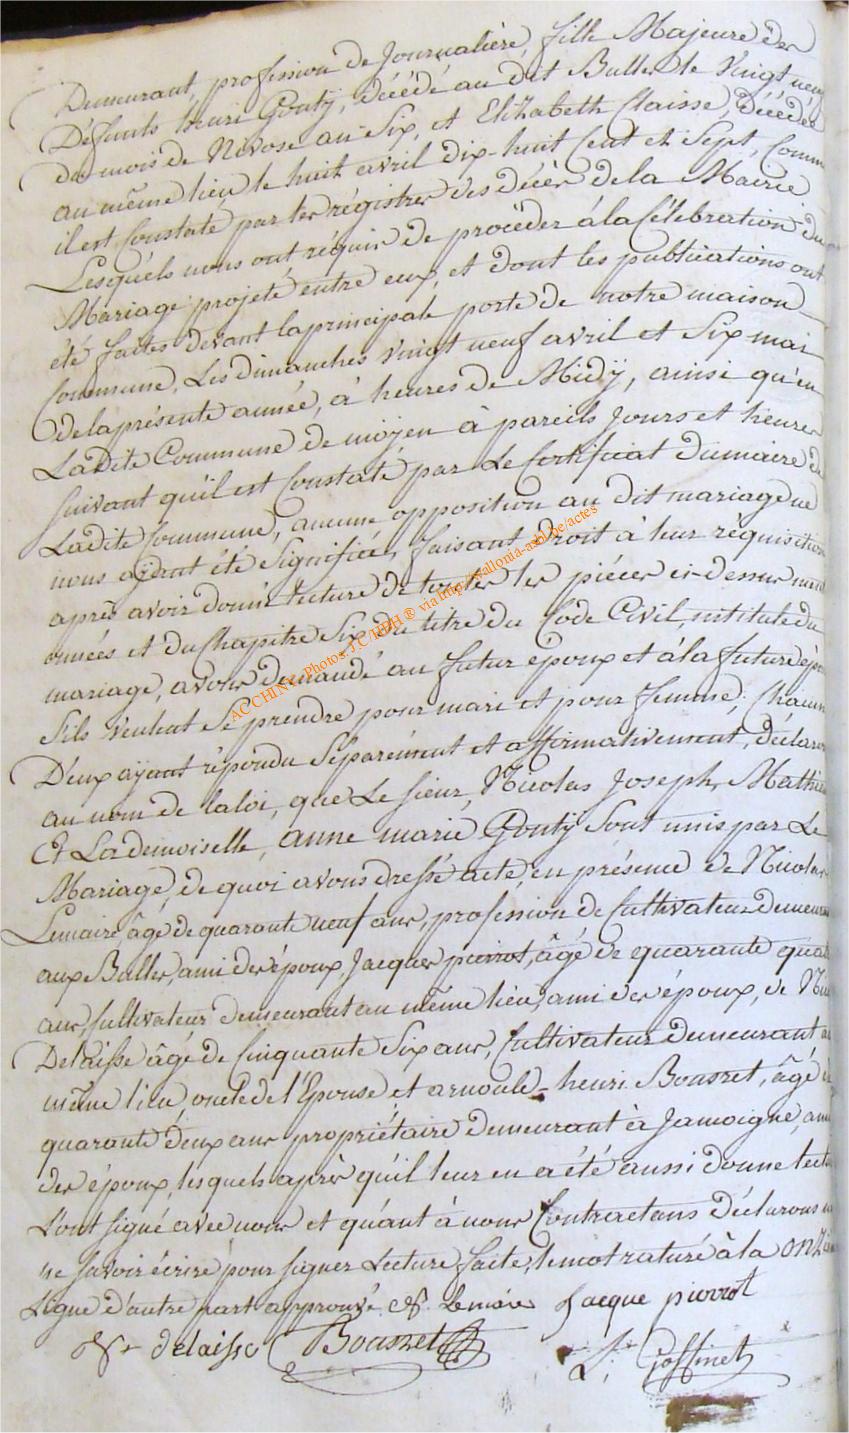 Demeurant, profession de Journalière, fille Majeure des
Défunts henri Gouty, décédé au dit Buller le Vingt neuf
du mois de Nivose an Six, et Elizabeth Claisse, Décédée
au même lieu le huit avril dix-huit Cent et Sept, Comm
il est Constaté par les régistres des décès de la Mairie
Lesquels nous ont réquis de procéder à la Célébration du
Mariage projeté entre eux, et dont les publications ont
été faites devant la principale porte de notre maison
Commune, Les dimanches vingt neuf avril et Six mai
de la présente année, à heures de Midÿ, ainsi qu'en
Ladite Commune de moÿen à pareils Jours et heures
suivant qu'il est Constaté par Le Certificat du maire de
Ladite Commune, aucune opposition au dit mariage ne
nous aÿant été Signifiée, faisant droit à leur réquisition
après avoir donné lecture de toutes les pièces ci-dessus men
onnées et du Chapitre Six du titre du Code Civil, intitulé du
mariage, avons demandé au futur époux et à la future épo
S'ils veulent Se prendre pour mari et pour femme; Chacun
D'eux aÿant répondu Séparément et affirmativement, déclaron
au nom de la loi, que Le Sieur, Nicolas Joseph Mathieu
Et La demoiselle, anne marie Gouty Sont unis par Le
Mariage, de quoi avons dressé acte, en présence de Nicolas
Lemaire, âgé de quarante neuf ans, profession de Cultivateur demeuran
aux Buller, ami des époux, Jacques pierrot, âgé de quarante quat
ans, Cultivateur demeurant au même lieu, ami des époux, de Nic
Delaisse âgé de Cinquante Six ans, Cultivateur demeurant au
même lieu, oncle de l'Epouse et arnould-henri Bousret, âgé de
quarante deux ans propriétaire demeurant à Jamoigne, ami
des époux, lesquels après qu'il leur en a été aussi donné lectu
L'ont signé avec nous et quant à nous Contractans Déclarons
ne savoir écrire pour signer Lecture faite, le mot raturé à la onzi
Ligne d'autre part approuvé. N. Lemaire Jacque pierrot
N. delaisse Bousret J. Goffinet
ACCHINY - Photos J.C/HDH ® via http://wallonia-asbl.be/actes